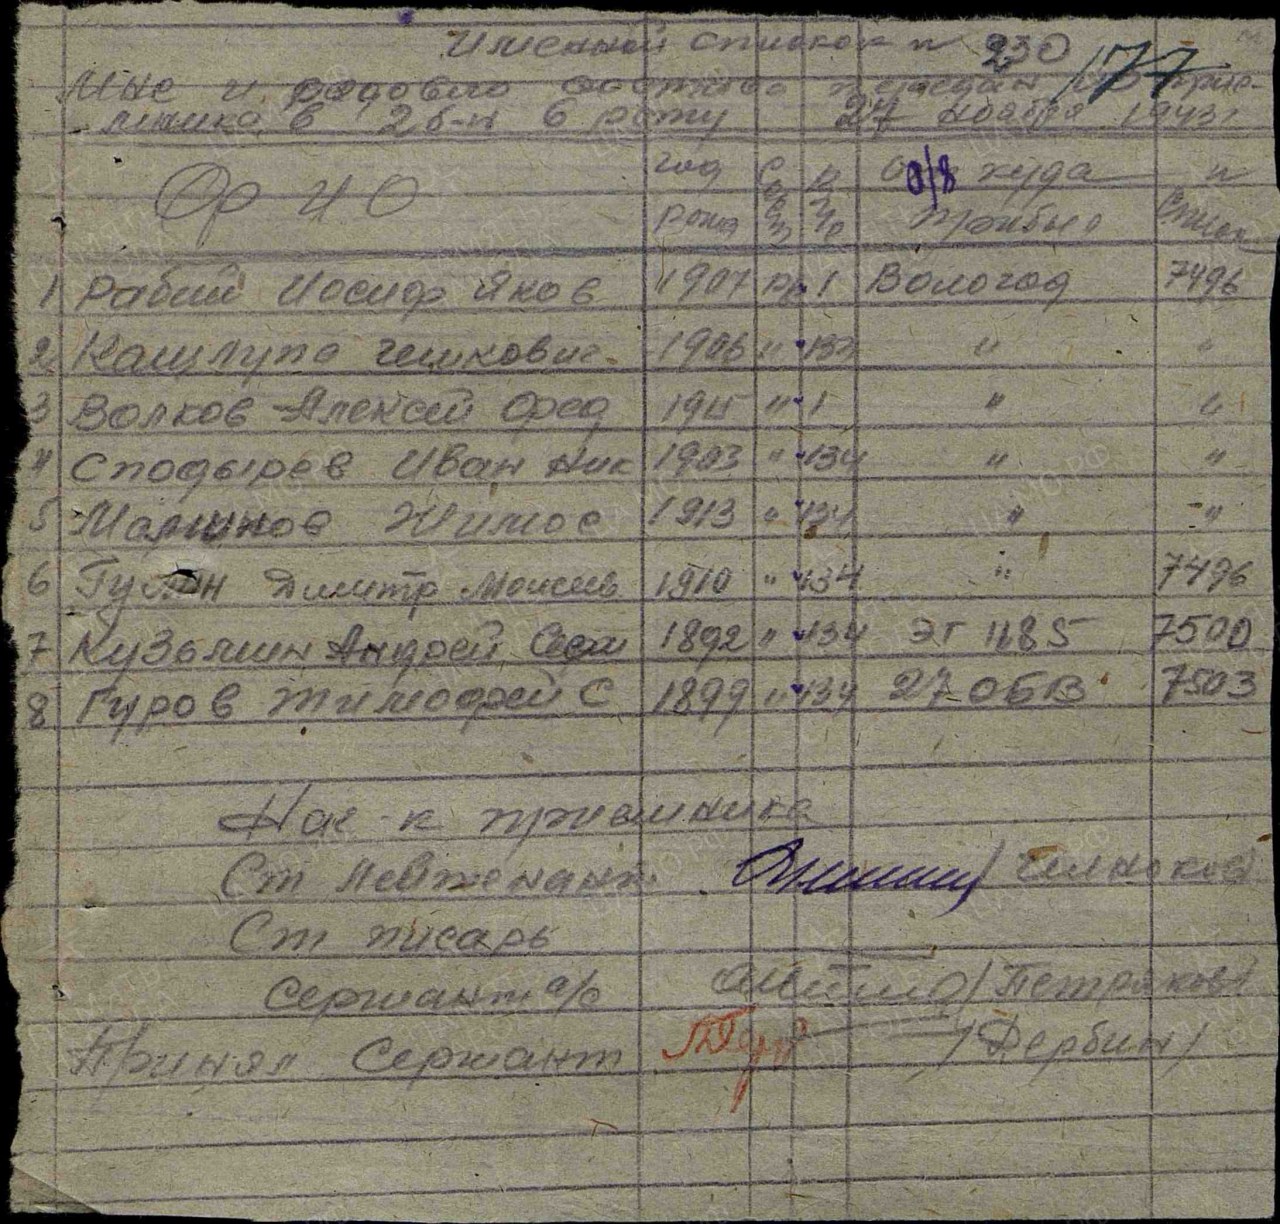 Именной список н 230
177
Мнс и рядового состава передан из прие-
мника в 2 б-н 6 роту 27 ноября 1943г
Ф И О год рожд от куда прибыл н список
0/8
1 Рабий Иосиф Яков 1907 ря 1 Вологод 7496
2 Кашлупа 1906 " 134 " "
3 Волков Алексей Фед 1915 " 1 " "
4 Сподырев Иван Ник 1903 " 134 " "
5 Малинов Тимос 1913 " 134 " "
6 Гусин Димитр Моисев 1910 " 134 " 7496
7 Кузьмин Андрей 1892 " 134 ЭГ 1185 7500
8 Гуров Тимофей С 1899 " 134 27 ОБВ 7503
Нач-к приемника
Ст лейтенант /Челноков/
Ст писарь
Сержант а/с /Петряков/
Принял Сержант /Дербин/